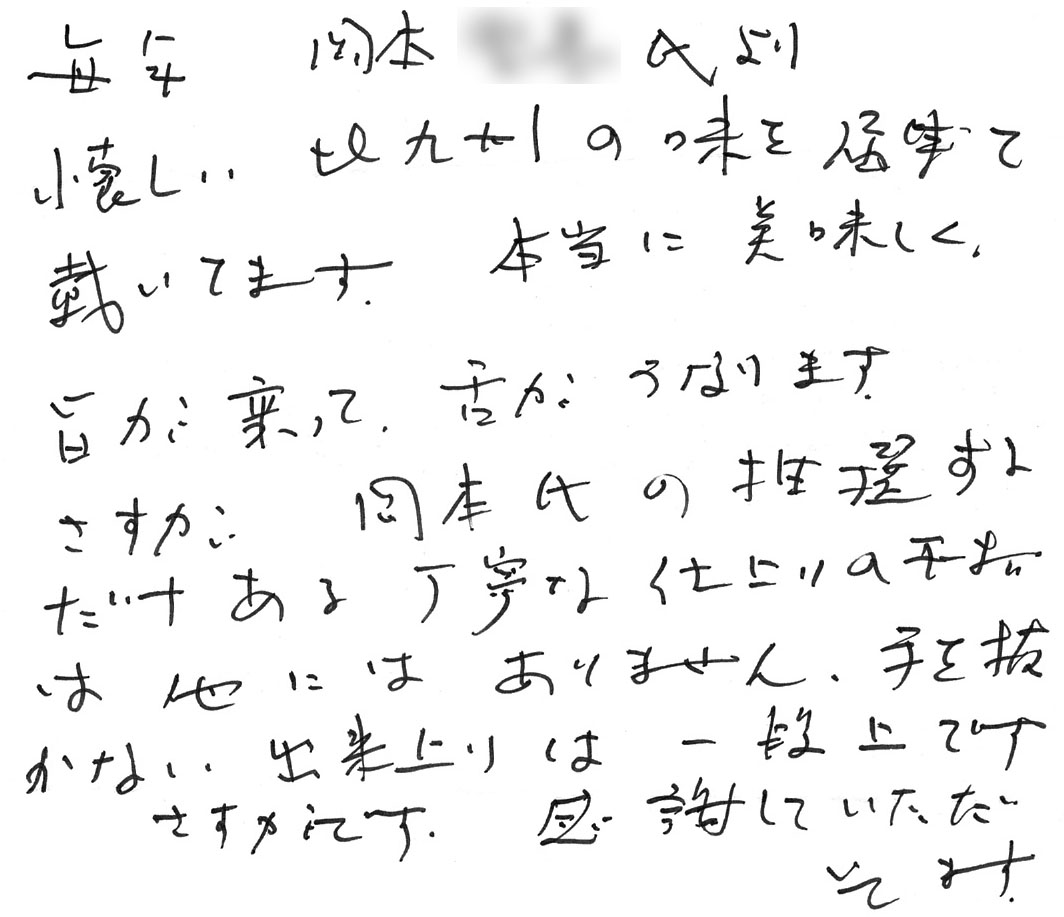 毎年 岡本 氏より
懐しい 北九州の味を届けて
載いてます。 本当に 美味しく、
旨が乗って、舌がうなります
さすが 岡本氏の する
だけある 丁寧な 仕上りの干物
は 他には ありません。手を抜
かない 出来上りは 一段上です
さすがです。 感謝していただ
いてます。